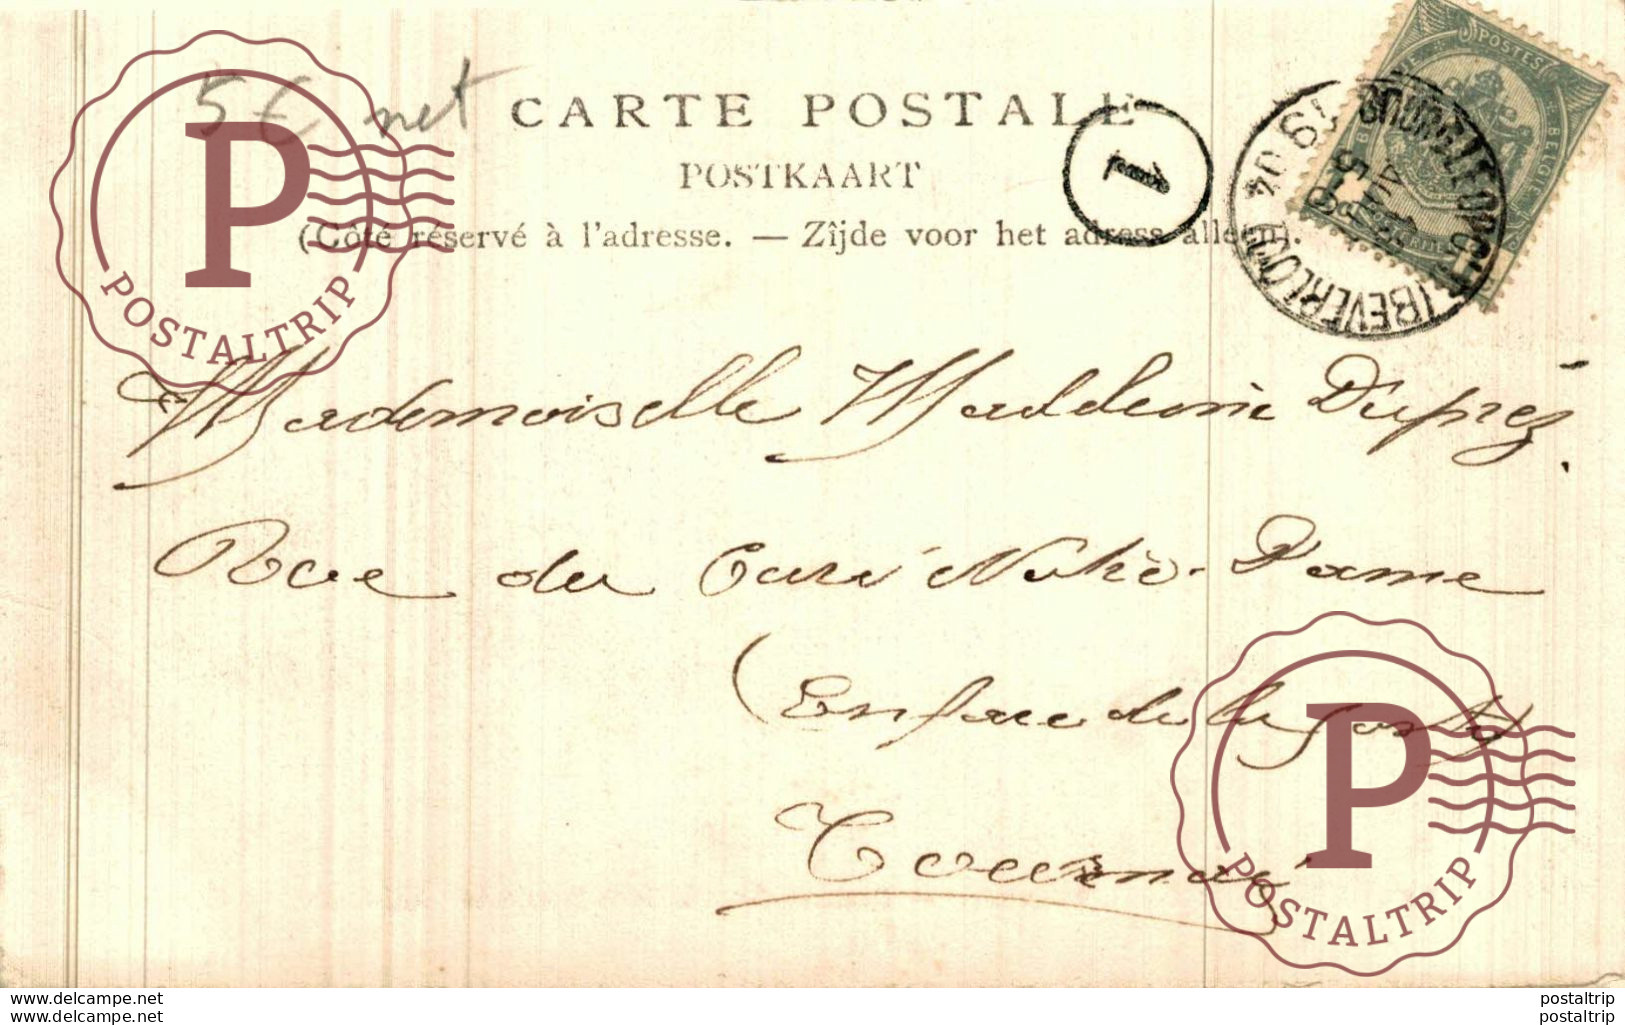 5 € net
CARTE POSTALE
POSTKAART
(Côté réservé à l'adresse. — Zijde voor het adress alleen).
1
BOURG-LÉOPOLD (BEVERLOO)
1904
POSTES
BELGIE
Mademoiselle Madeleine Duprez.
Rue du Curé Notre-Dame
(En face de la poste)
Tournai
P
POSTALTRIP
P
POSTALTRIP
www.delcampe.net postaltrip
www.delcampe.net postaltrip